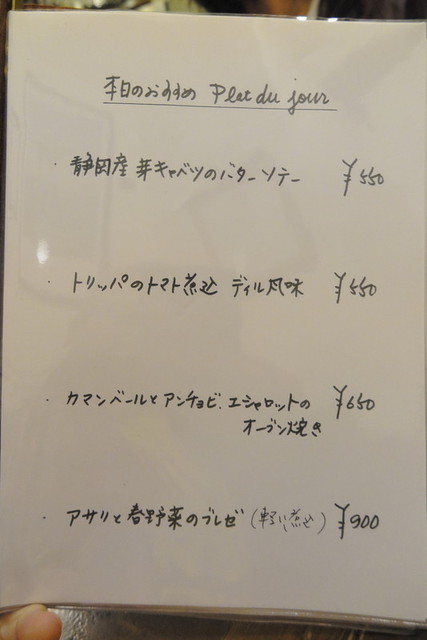 本日のおすすめ Plat du jour
・静岡産 芽キャベツのバターソテー ¥550
・トリッパのトマト煮込 ディル風味 ¥550
・カマンベールとアンチョビ、エシャロットの ¥650
オーブン焼き
・アサリと春野菜のブレゼ (軽い煮込) ¥900